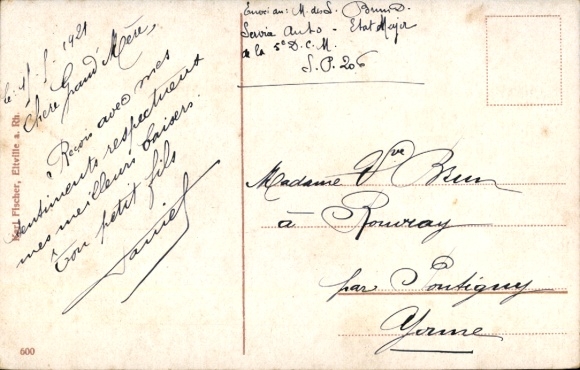 le 4/5/1921
Chère Grand' Mère,
Reçois avec mes
sentiments respectueux
mes meilleurs baisers.
Ton petit fils
Daniel
Karl Fischer, Eltville a. Rh.
600
Envoi du: M. des L. Brun D.
Service Auto - Etat Major
de la 5e D.C.M.
S.P. 206
Madame Vve Brun
à Rouvray
par Pontigny
Yonne